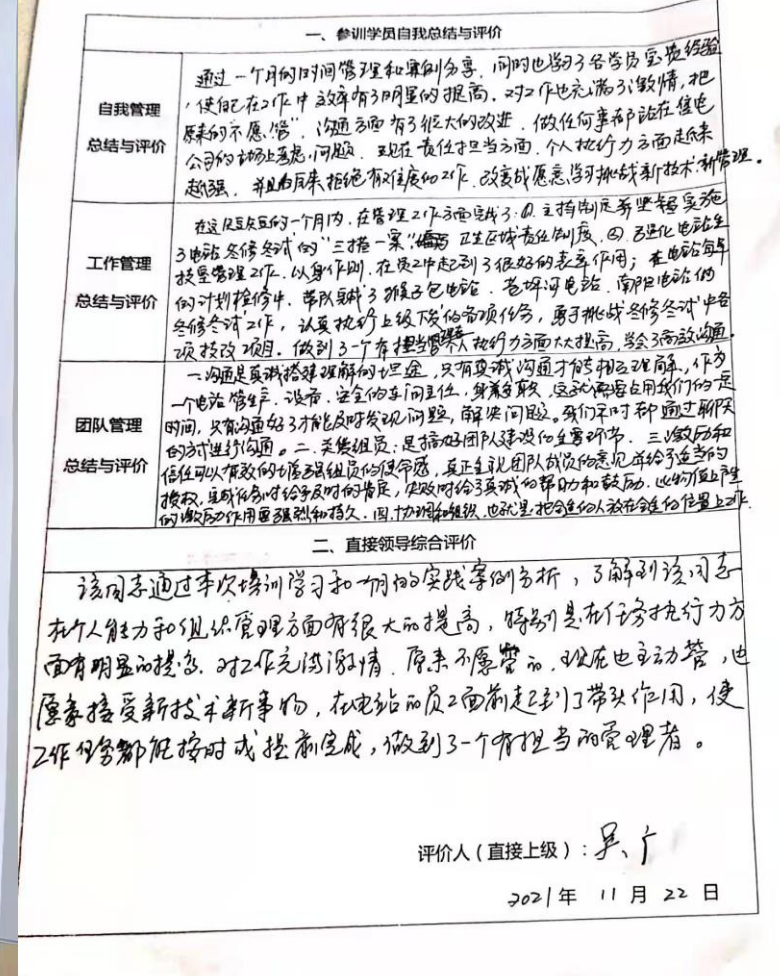 一、参训学员自我总结与评价
自我管理
总结与评价
通过一个月的时间管理和案例分享，同时也学习了各学员宝贵经验
，使自己在工作中效率有了明显的提高。对工作也充满了激情，把
原来的"不愿管"，沟通方面有了很大的改进，做任何事都站在
公司的立场上考虑问题，现在责任担当方面，个人执行力方面越来
越强。并且由原来拒绝有难度的工作，改变成愿意学习挑战新技术、新管理。
工作管理
总结与评价
在这短短的一个月内，在管理工作方面完成了：①主持制定并坚持实施
了电站冬修冬试的"三措一案" 卫生区域责任制度，②强化电站生
技量管理工作，以身作则，在员工中起到了很好的表率作用；在电站每年
的计划检修中，带队完成了猴子包电站、苍坪河电站、南阳电站的
"冬修冬试"工作，认真执行上级下发的各项任务，勇于挑战冬修冬试中各
项技改项目。做到了一个有担当管理者，个人执行力方面大大提高，学会了高效沟通。
团队管理
总结与评价
一、沟通是真诚搭建理解的坦途，只有真诚沟通才能相互理解，作为
一个电站管生产、设备、安全的车间主任，身兼数职，这就需要占用我们的一定
时间，只有沟通好了才能及时发现问题，解决问题。我们平时都通过聊天
的方式进行沟通。二、关爱组员：是搞好团队建设的主要环节。三、激励和
信任可以有效的增强组员的使命感，真正重视团队成员的意见并给予适当的
授权，完成任务时给予及时的肯定，失败时给予真诚的帮助和鼓励，比物质上产生
的激励作用要强烈和持久。四、协调和组织，也就是把合适的人放在合适的位置上工作。
二、直接领导综合评价
该同志通过本次培训学习和一个月的实践案例分析，了解到该同志
在个人能力和组织管理方面有很大的提高，特别是在任务执行力方
面有明显的提高。对工作充满激情，原来不愿管的，现在也主动管，也
愿意接受新技术新事物，在电站的员工面前起到了带头作用，使
工作任务都能按时或提前完成，做到了一个有担当的管理者。
评价人（直接上级）：吴广
2021年 11月 22日